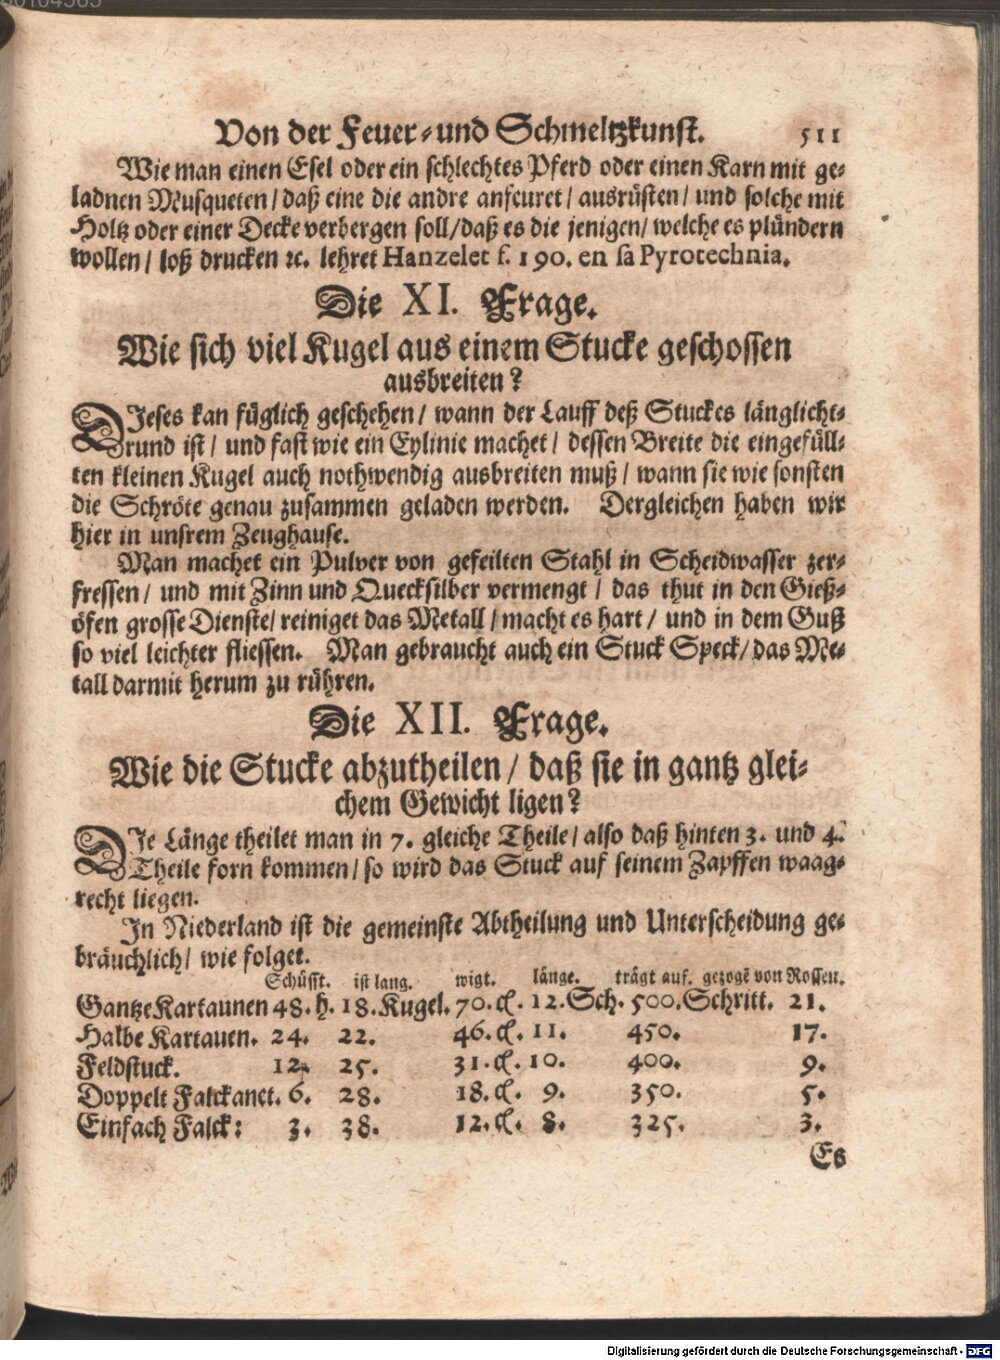 Von der Feuer-und Schmeltzkunst. 511
Wie man einen Esel oder ein schlechtes Pferd oder einen Karn mit ge-
ladnen Musqueten / daß eine die andre anfeuret / ausrüsten / und solche mit
Holtz oder einer Decke verbergen soll / daß es die jenigen / welche es plündern
wollen / loß drucken ꝛc. lehret Hanzelet f. 190. en sa Pyrotechnia.
Die XI. Frage.
Wie sich viel Kugel aus einem Stucke geschossen
ausbreiten?
DIeses kan füglich geschehen / wann der Lauff deß Stuckes länglicht-
rund ist / und fast wie ein Eylinie machet / dessen Breite die eingefüll-
ten kleinen Kugel auch nothwendig ausbreiten muß / wann sie wie sonsten
die Schröte genau zusammen geladen werden. Dergleichen haben wir
hier in unsrem Zeughause.
Man machet ein Pulver von gefeilten Stahl in Scheidwasser zer-
fressen / und mit Zinn und Quecksilber vermengt / das thut in den Gieß-
öfen grosse Dienste / reiniget das Metall / macht es hart / und in dem Guß
so viel leichter fliessen. Man gebraucht auch ein Stuck Speck / das Me-
tall darmit herum zu rühren.
Die XII. Frage.
Wie die Stucke abzutheilen / daß sie in gantz glei-
chem Gewicht ligen?
DIe Länge theilet man in 7. gleiche Theile / also daß hinten 3. und 4.
Theile forn kommen / so wird das Stuck auf seinem Zapffen waag-
recht liegen.
In Niederland ist die gemeinste Abtheilung und Unterscheidung ge-
bräuchlich / wie folget.
Schüsst. ist lang. wigt. länge. trägt auf. gezogē von Rossen.
Gantze Kartaunen 48. h. 18. Kugel. 70. cl. 12. Sch. 500. Schritt. 21.
Halbe Kartauen. 24. 22. 46. cl. 11. 450. 17.
Feldstuck. 12. 25. 31. cl. 10. 400. 9.
Doppelt Falckanet. 6. 28. 18. cl. 9. 350. 5.
Einfach Falck: 3. 38. 12. cl. 8. 325. 3.
Es
Digitalisierung gefördert durch die Deutsche Forschungsgemeinschaft - DFG